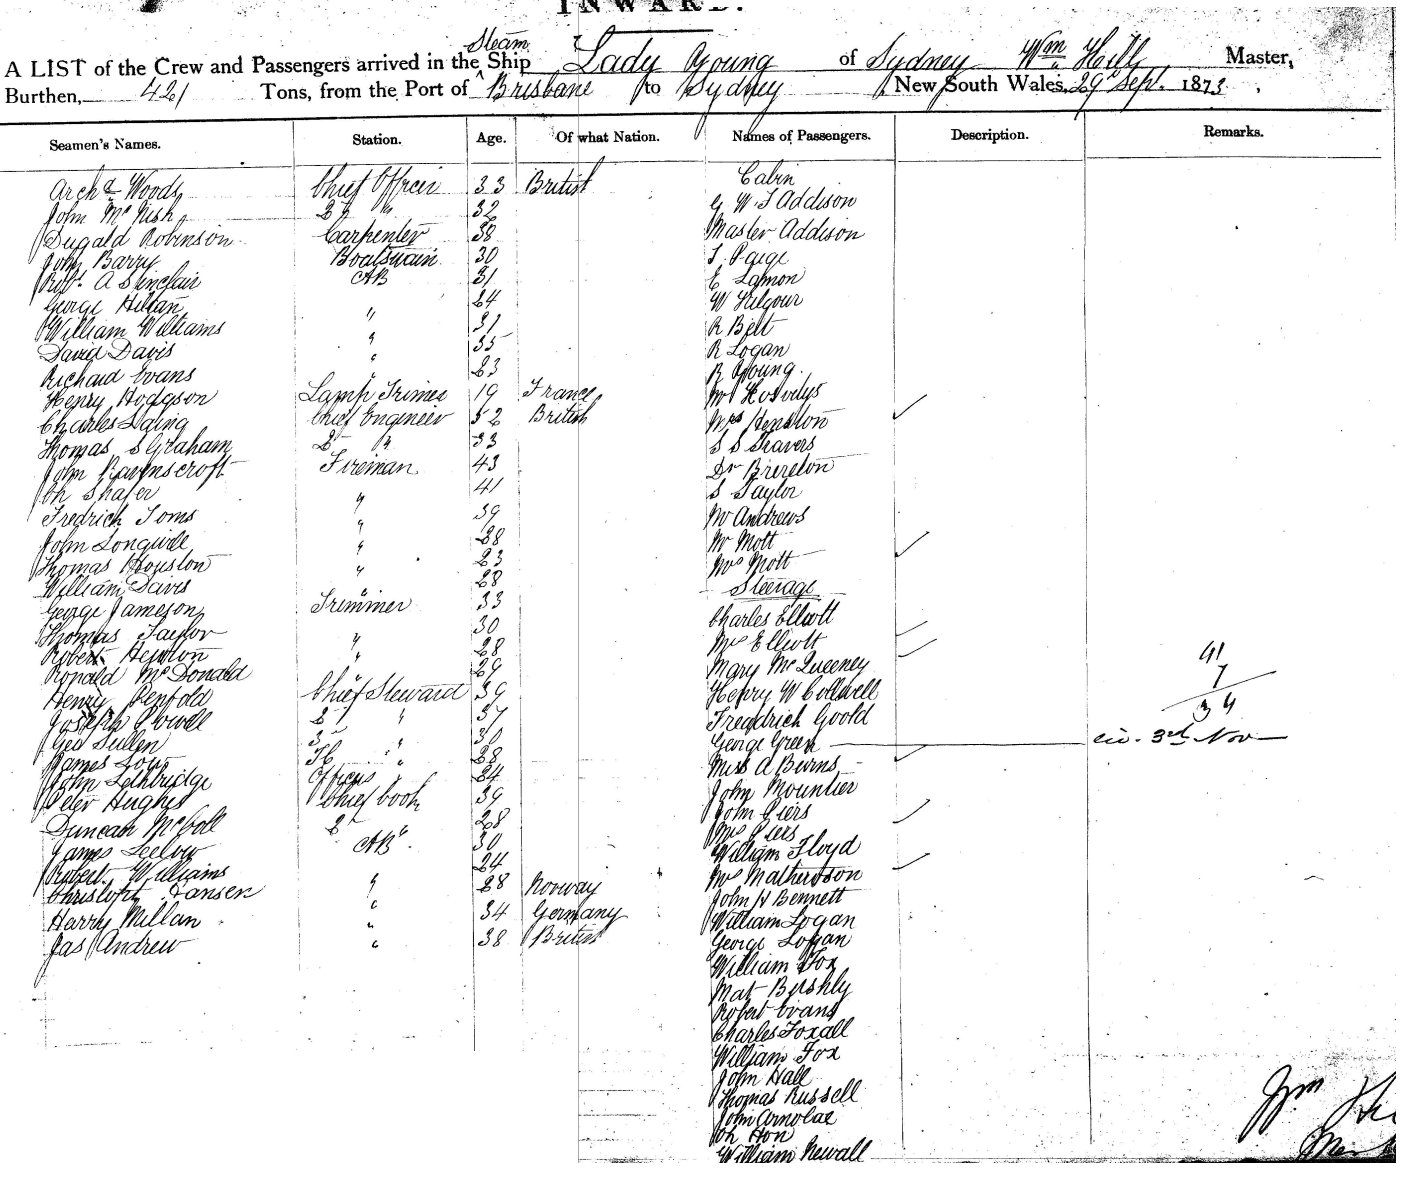 INWARD.
A LIST of the Crew and Passengers arrived in the Steam Ship Lady Young of Sydney Wm Hill Master,
Burthen, 421 Tons, from the Port of Brisbane to Sydney New South Wales, 29 Sept. 1873
Seamen's Names. Station. Age. Of what Nation. Names of Passengers. Description. Remarks.
Archd Woods Chief Officer 33 British
John McNish 2d " 32
Dugald Robinson Carpenter 38
John Barry Boatswain 30
Robt. A Sinclair AB 31
George Hillan " 24
William Williams " 31
David Davis " 35
Richard Evans " 23
Henry Hodgson Lamp Trimer 19 France
Charles Laing Chief Engineer 52 British
Thomas S Graham 2 " 33
John Ravenscroft Fireman 43
Ch Shafer " 41
Fredrich Toms " 39
John Longwill " 28
Thomas Houston " 23
William Davis " 28
George Jameson Trimmer 33
Thomas Taylor " 30
Robert Hewton " 28
Ronald McDonald " 29
Henry Penfold Chief Steward 39
Joseph Powell 2 " 37
Geo Sullen 3 " 30
James Low " 28
John Lethbridge Officers " 24
Peter Hughes Chief Cook 39
Duncan McColl 2 " 28
James Leelow AB 30
Robert Williams 24
Christoph Hansen " 28 Norway
Harry Millan " 34 Germany
Jas Andrew " 38 British
Cabin
G W S Addison
Master Addison
T. Paige
E Lamon
W Kilgour
R Belt
R Logan
R Young
Mr
Mrs Henston
S S Travers
Dr Brereton
S Taylor
Mr Andrews
Mr Mott
Mrs Mott
Steerage
Charles Elliott
Mrs Elliott
Mary McQueeney
Henry W Collwell
Freedrich Goold
George Green
Miss A Burns
John Mountier
John Piers
Mrs Piers
William Floyd
Mrs Mathewson
John H Bennett
William Logan
George Logan
William Fox
Mat Bushly
Robert Evans
Charles Foxall
William Fox
John Hall
Thomas Russell
John
Ch Hon
William Newall
41
7
34
3rd Nov
Wm